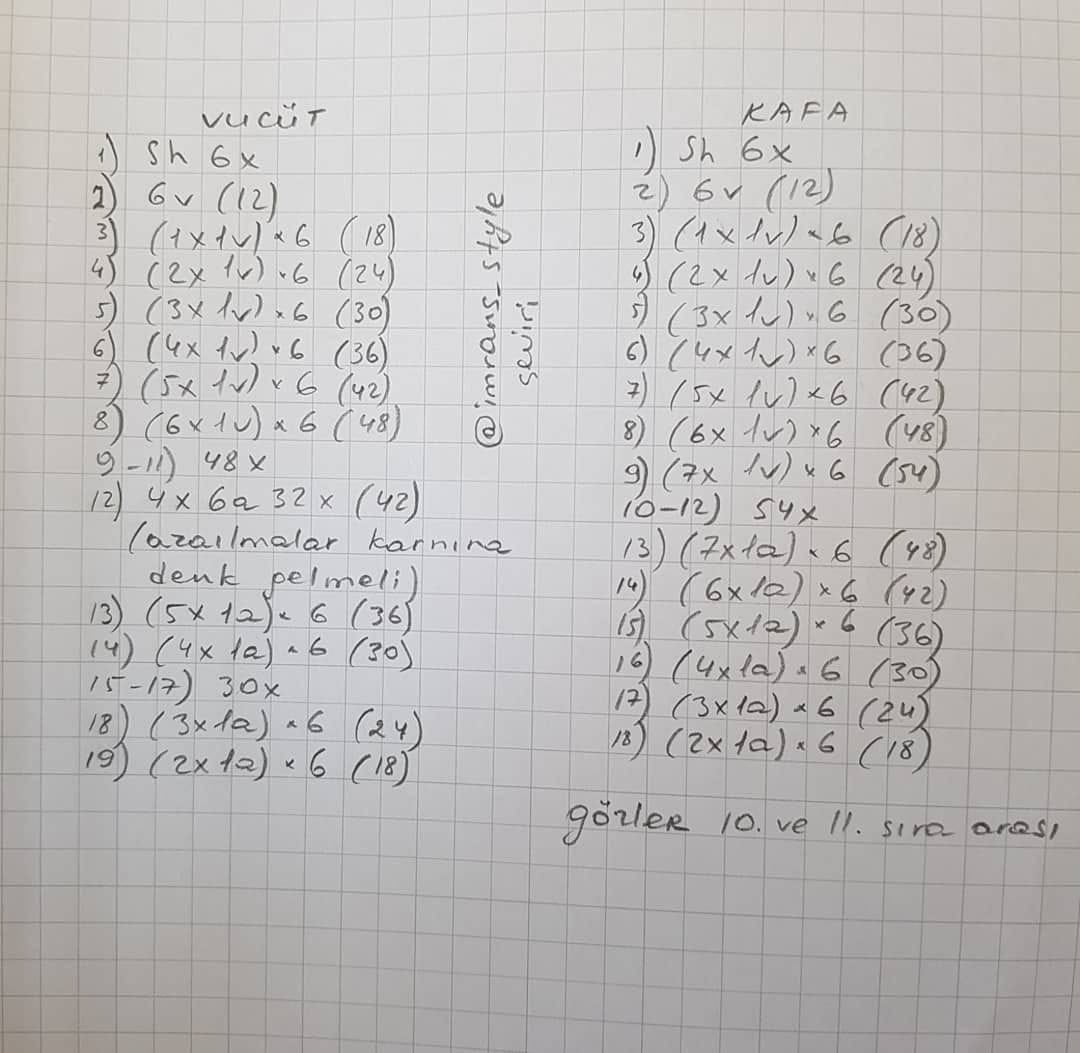 VUCÜT
1) Sh 6x
2) 6v (12)
3) (1x 1v) × 6 (18)
4) (2x 1v) × 6 (24)
5) (3x 1v) × 6 (30)
6) (4x 1v) × 6 (36)
7) (5x 1v) × 6 (42)
8) (6x 1v) × 6 (48)
9-11) 48x
12) 4x 6a 32x (42)
(azaılmalar karnına
denk pelmeli)
13) (5x 1a) × 6 (36)
14) (4x 1a) × 6 (30)
15-17) 30x
18) (3x 1a) × 6 (24)
19) (2x 1a) × 6 (18)
@imrans_style
seviri
KAFA
1) Sh 6x
2) 6v (12)
3) (1x 1v) × 6 (18)
4) (2x 1v) × 6 (24)
5) (3x 1v) × 6 (30)
6) (4x 1v) × 6 (36)
7) (5x 1v) × 6 (42)
8) (6x 1v) × 6 (48)
9) (7x 1v) × 6 (54)
10-12) 54x
13) (7x 1a) × 6 (48)
14) (6x 1a) × 6 (42)
15) (5x 1a) × 6 (36)
16) (4x 1a) × 6 (30)
17) (3x 1a) × 6 (24)
18) (2x 1a) × 6 (18)
gözler 10. ve 11. sıra arası